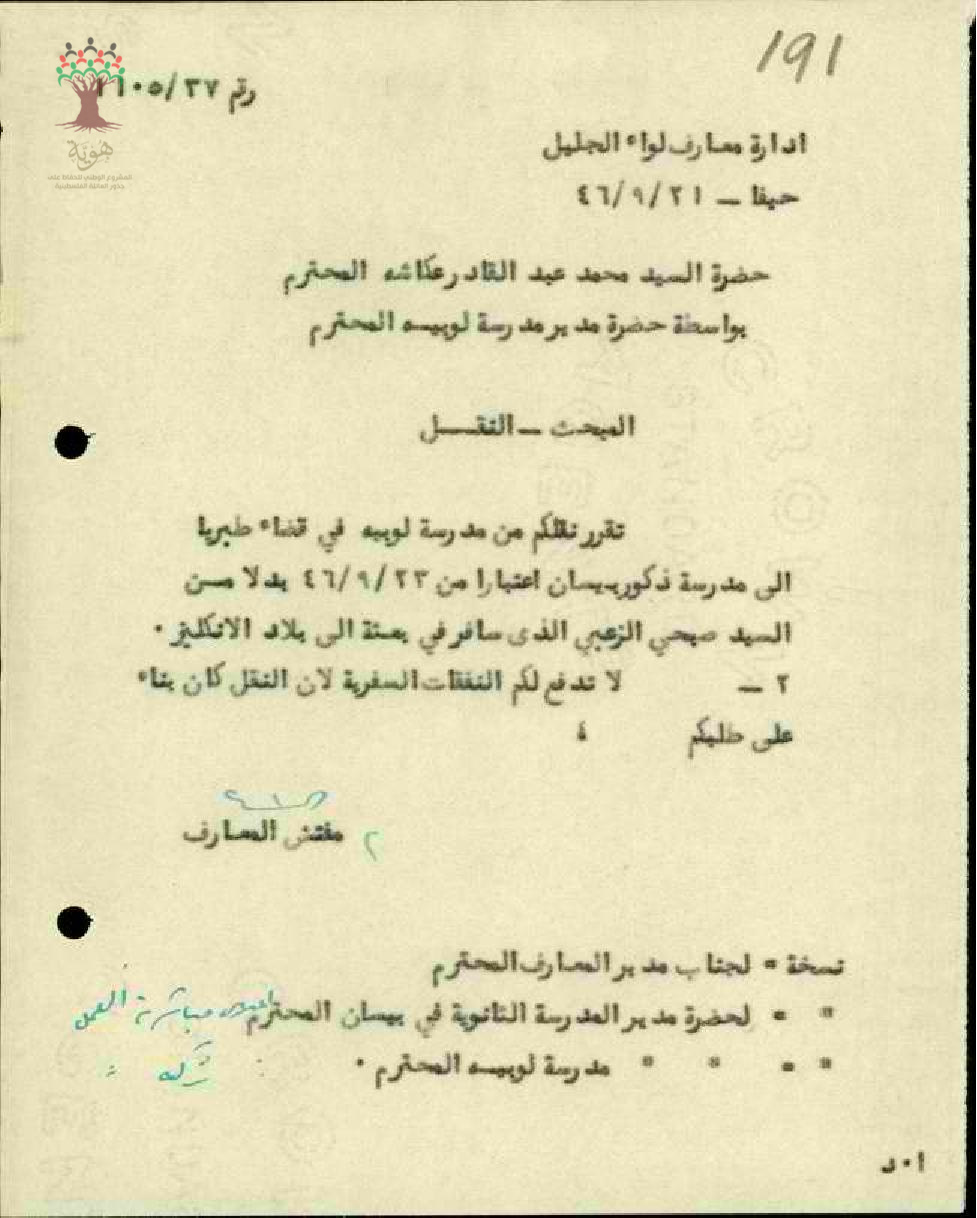 191
رقم ٣٧/١١٠٥
هوية
المشروع الوطني للحفاظ على
جذور العائلة الفلسطينية
ادارة معارف لواء الجليل
حيفا — ٤٦/٩/٢١
حضرة السيد محمد عبد القادر عكاشه المحترم
بواسطة حضرة مدير مدرسة لوبيــه المحترم
المبحث — النقــل
تقرر نقلكم من مدرسة لوبيه في قضاء طبريا
الى مدرسة ذكور بيسان اعتبارا من ٤٦/٩/٢٣ بدلا مــن
السيد صبحي الزعبي الذى سافر في بعثة الى بلاد الانكليز ٠
٢ — لا تدفع لكم النفقات السفرية لان النقل كان بناء
على طلبكم ؛
مفتش المعارف
نسخة = لجناب مدير المعارف المحترم
" = لحضرة مدير المدرسة الثانوية في بيسان المحترم مباشرته العمل
" = " " مدرسة لوبيــه المحترم ٠ تركه
ا٠د